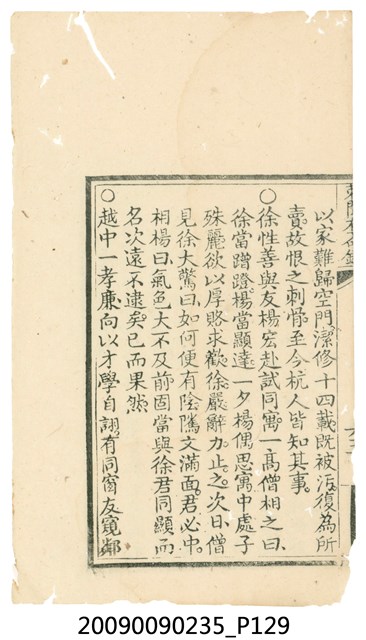 以家難歸空門潔修十四載既被污復為所
賣故恨之刺骨至今杭人皆知其事
○徐性善與友楊宏赴試同寓一高僧相之曰
徐當蹭蹬楊當顯達一夕楊偶思寓中處子
殊麗欲以厚賂求歡徐嚴辭力止之次日僧
見徐大驚曰如何便有陰隲文滿面君必中
相楊曰氣色大不及前固當與徐君同顯而
名次遠不逮矣已而果然
○越中一孝廉向以才學自詡有同窗友窺鄰
20090090235_P129